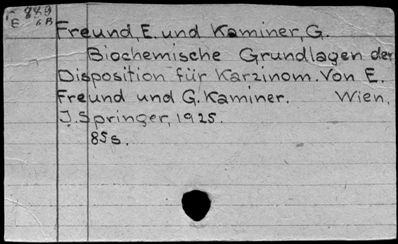 849
E 6B
Freund, E. und Kaminer, G.
Biochemische Grundlagen der
Disposition für Karzinom. Von E.
Freund und G. Kaminer. Wien,
J. Springer, 1925.
85s.